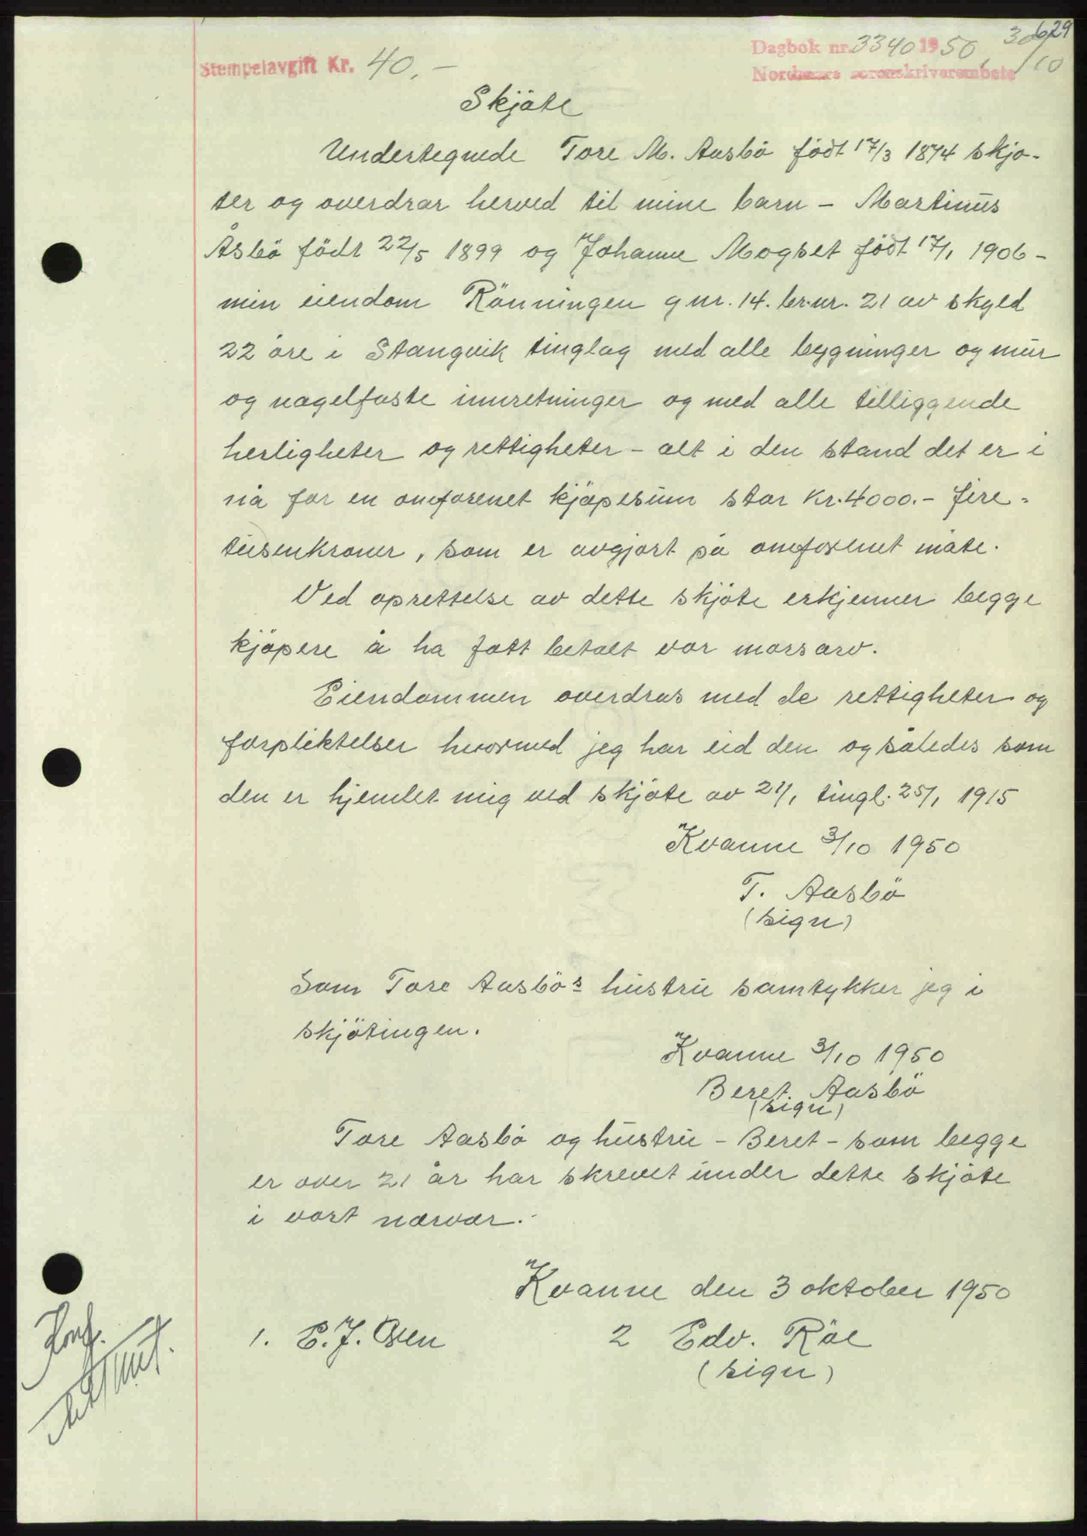 629
Stempelavgift Kr. 40.-
Dagbok nr. 3340 1950, 30/10
Nordmøre sorenskriverembete
Skjöte
Undertegnede Tore M. Aasbö födt 17/3 1874 skjö-
ter og overdrar herved til mine barn - Martinus
Åsbö födt 22/5 1899 og Johanne Mogset födt 17/1 1906 -
min eiendom Rönningen gnr. 14. br.nr. 21 av skyld
22 öre i Stangvik tinglag med alle bygninger og mur
og nagelfaste innretninger og med alle tilliggende
herligheter og rettigheter - alt i den stand det er i
nå for en omforenet kjöpesum stor Kr. 4000.- fire-
tusenkroner, som er avgjort på omforenet måte.
Ved oprettelse av dette skjöte erkjenner begge
kjöpere å ha fått betalt vor morsarv.
Eiendommen overdras med de rettigheter og
forpliktelser hvormed jeg har eid den og således som
den er hjemlet mig ved skjöte av 21/1 tingl. 25/1 1915
Kvanne 3/10 1950
T. Aasbö
(sign)
Som Tore Aasbös hustru samtykker jeg i
skjötingen.
Kvanne 3/10 1950
Beret Aasbö
(sign)
Tore Aasbö og hustru - Beret - som begge
er over 21 år har skrevet under dette skjöte
i vort nærvær.-
Kvanne den 3 oktober 1950
1. E. J. Öien 2 Edv. Röe
(sign)
Konf.